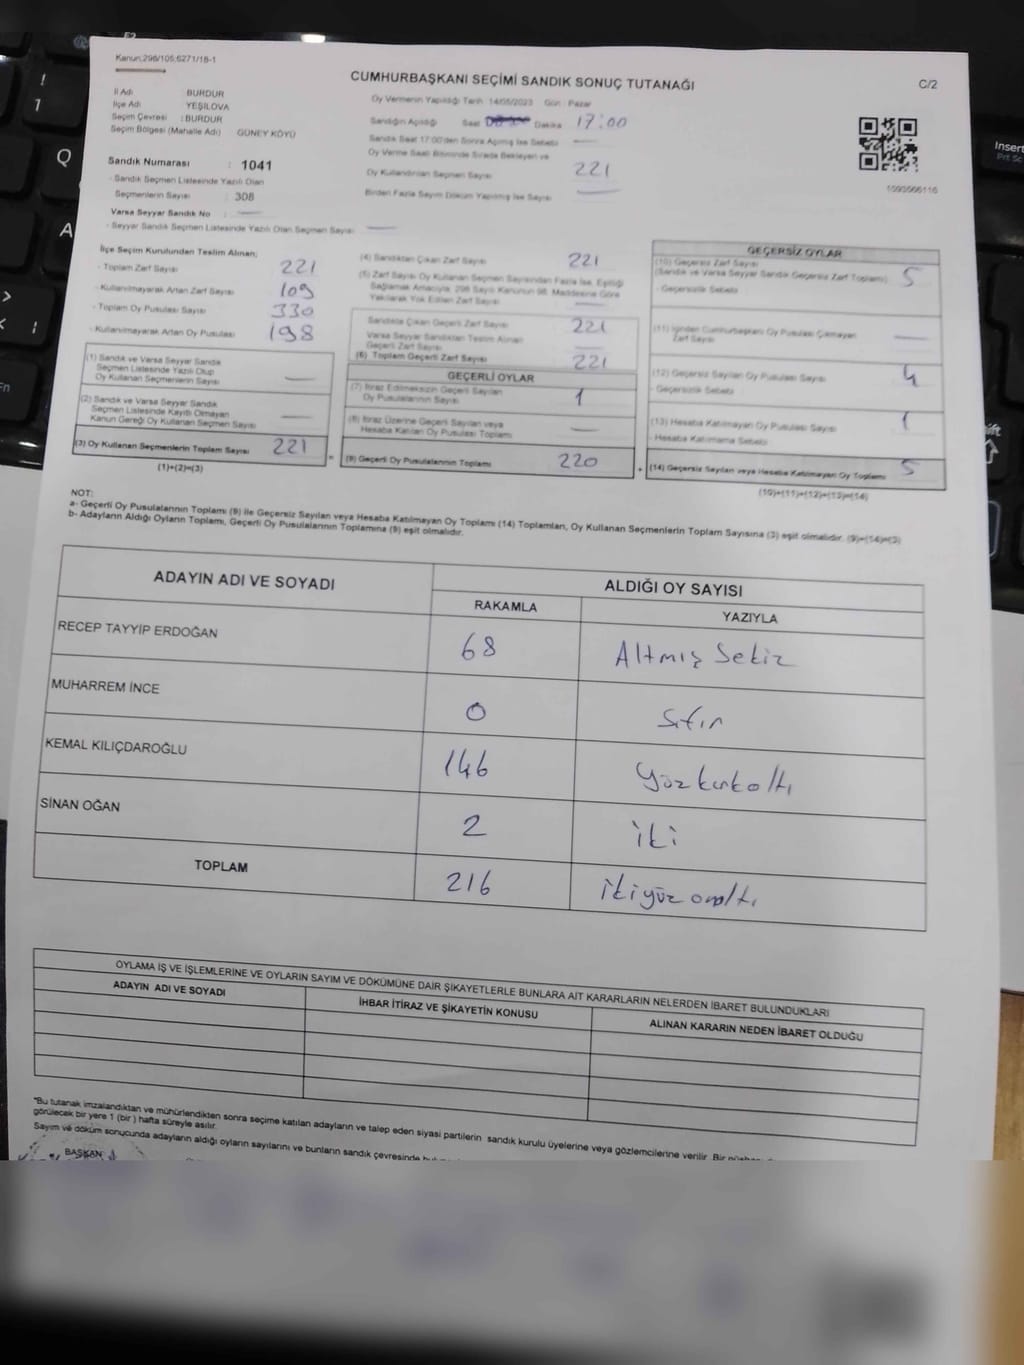 Kanun:298/105;6271/18-1
CUMHURBAŞKANI SEÇİMİ SANDIK SONUÇ TUTANAĞI
C/2
İl Adı BURDUR
İlçe Adı YEŞİLOVA
Seçim Çevresi : BURDUR
Seçim Bölgesi (Mahalle Adı) GÜNEY KÖYÜ
Sandık Numarası : 1041
- Sandık Seçmen Listesinde Yazılı Olan
Seçmenlerin Sayısı : 308
Varsa Seyyar Sandık No :
- Seyyar Sandık Seçmen Listesinde Yazılı Olan Seçmen Sayısı
Oy Vermenin Yapıldığı Tarih 14/05/2023 Gün : Pazar
Sandığın Açıldığı Saat Dakika 17:00
Sandık Saat 17:00'den Sonra Açılmış İse Sebebi
Oy Verme Saati Bitiminde Sırada Bekleyen ve
Oy Kullandırılan Seçmen Sayısı 221
Birden Fazla Sayım Döküm Yapılmış İse Sayısı
1093566116
İlçe Seçim Kurulundan Teslim Alınan;
- Toplam Zarf Sayısı 221
- Kullanılmayarak Artan Zarf Sayısı 109
- Toplam Oy Pusulası Sayısı 330
- Kullanılmayarak Artan Oy Pusulası 198
(1) Sandık ve Varsa Seyyar Sandık
Seçmen Listesinde Yazılı Olup
Oy Kullanan Seçmenlerin Sayısı
(2) Sandık ve Varsa Seyyar Sandık
Seçmen Listesinde Kayıtlı Olmayan
Kanun Gereği Oy Kullanan Seçmen Sayısı
(3) Oy Kullanan Seçmenlerin Toplam Sayısı 221
(1)+(2)=(3)
(4) Sandıktan Çıkan Zarf Sayısı 221
(5) Zarf Sayısı Oy Kullanan Seçmen Sayısından Fazla İse, Eşitliği
Sağlamak Amacıyla, 298 Sayılı Kanunun 98. Maddesine Göre
Yakılarak Yok Edilen Zarf Sayısı
Sandıkta Çıkan Geçerli Zarf Sayısı 221
Varsa Seyyar Sandıktan Teslim Alınan
Geçerli Zarf Sayısı
(6) Toplam Geçerli Zarf Sayısı 221
GEÇERLİ OYLAR
(7) İtiraz Edilmeksizin Geçerli Sayılan
Oy Pusulalarının Sayısı 1
(8) İtiraz Üzerine Geçerli Sayılan veya
Hesaba Katılan Oy Pusulası Toplamı
=
(9) Geçerli Oy Pusulalarının Toplamı 220
+
GEÇERSİZ OYLAR
(10) Geçersiz Zarf Sayısı
(Sandık ve Varsa Seyyar Sandık Geçersiz Zarf Toplamı) 5
- Geçersizlik Sebebi
(11) İçinden Cumhurbaşkanı Oy Pusulası Çıkmayan
Zarf Sayısı
(12) Geçersiz Sayılan Oy Pusulası Sayısı 4
- Geçersizlik Sebebi
(13) Hesaba Katılmayan Oy Pusulası Sayısı 1
- Hesaba Katılmama Sebebi
(14) Geçersiz Sayılan veya Hesaba Katılmayan Oy Toplamı 5
(10)+(11)+(12)+(13)=(14)
NOT:
a- Geçerli Oy Pusulalarının Toplamı (9) ile Geçersiz Sayılan veya Hesaba Katılmayan Oy Toplamı (14) Toplamları, Oy Kullanan Seçmenlerin Toplam Sayısına (3) eşit olmalıdır. (9)+(14)=(3)
b- Adayların Aldığı Oyların Toplamı, Geçerli Oy Pusulalarının Toplamına (9) eşit olmalıdır.
ADAYIN ADI VE SOYADI
ALDIĞI OY SAYISI
RAKAMLA YAZIYLA
RECEP TAYYİP ERDOĞAN 68 Altmış Sekiz
MUHARREM İNCE 0 Sıfır
KEMAL KILIÇDAROĞLU 146 Yüzkırkaltı
SİNAN OĞAN 2 İki
TOPLAM 216 İkiyüz onaltı
OYLAMA İŞ VE İŞLEMLERİNE VE OYLARIN SAYIM VE DÖKÜMÜNE DAİR ŞİKAYETLERLE BUNLARA AİT KARARLARIN NELERDEN İBARET BULUNDUKLARI
ADAYIN ADI VE SOYADI
İHBAR İTİRAZ VE ŞİKAYETİN KONUSU
ALINAN KARARIN NEDEN İBARET OLDUĞU
*Bu tutanak imzalandıktan ve mühürlendikten sonra seçime katılan adayların ve talep eden siyasi partilerin sandık kurulu üyelerine veya gözlemcilerine verilir. Bir
görülecek bir yere 1 (bir ) hafta süreyle asılır.
Sayım ve döküm sonucunda adayların aldığı oyların sayılarını ve bunların sandık çevresinde
BAŞKAN